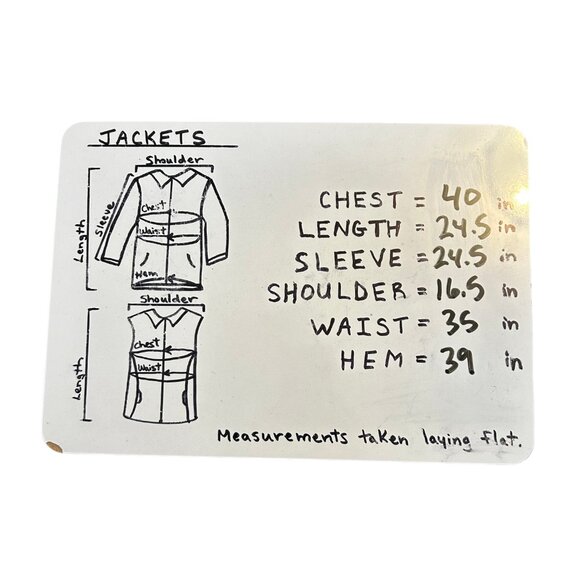 JACKETS
Shoulder
Length
Sleeve
Chest
Waist
Hem
Shoulder
Length
Chest
Waist
CHEST = 40 in
LENGTH = 24.5 in
SLEEVE = 24.5 in
SHOULDER = 16.5 in
WAIST = 35 in
HEM = 39 in
Measurements taken laying flat.